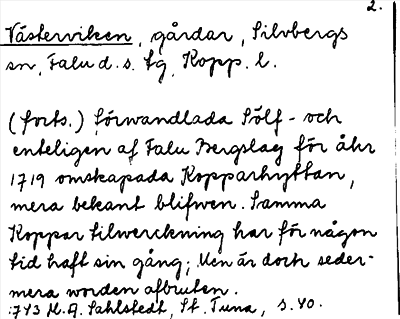 2.
Västerviken, gårdar, Silvbergs
sn, Falu d. s. tg, Kopp. l.
(forts.) förwandlada Sölf- och
enteligen af Falu Bergslag för åhr
1719 omskapada Kopparhyttan,
mera bekant blifwen. Samma
Koppar tilwerckning har för någon
tid haft sin gång; Men är doch seder-
mera worden afbruten.
:743 M. A. Sahlstedt, St. Tuna, s. 40.